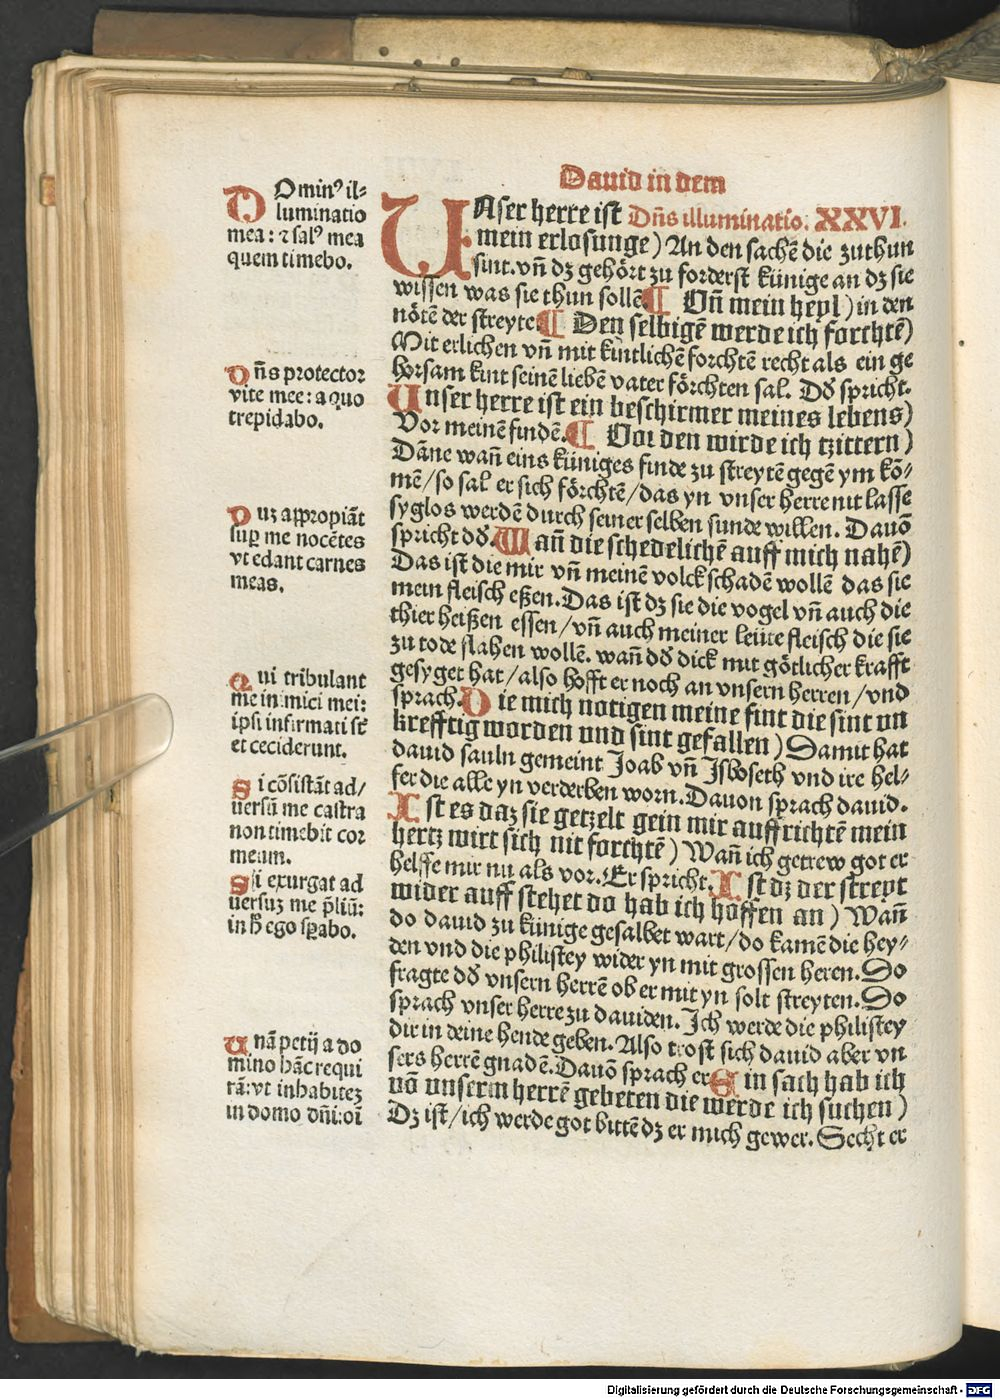 Dauid in dem
Dominꝰ il⸗
luminatio
mea: ⁊ salꝰ mea
quem timebo.
dn̄s protector
vite mee: a quo
trepidabo.
Duz appropiāt
suꝑ me nocētes
vt edant carnes
meas.
Qui tribulant
me inimici mei:
ipsi infirmati sūt
et ceciderunt.
Si cōsistāt ad/
uersū me castra
non timebit cor
meum.
Si exurgat ad
uersuz me p̄liū:
in h̄ ego sꝑabo.
Unā petij a do
mino hāc requi
rā: vt inhabitez
in domo dn̄i: oī
UNser herre ist Dn̄s illuminatio. XXVI.
mein erlosunge) An den sachē die zuthun
sint. vn̄ dz gehört zu forderst künige an dz sie
wissen was sie thun sollē. ¶ Vn̄ mein heyl) in den
nötē der streyte. ¶ Den selbigē werde ich forchtē)
Mit erlichen vn̄ mit kintlichē forchtē recht als ein ge
horsam kint seinē liebē vater förchten sal. Dō spricht.
Unser herre ist ein beschirmer meines lebens)
Vor meinē findē. ¶ Vor den wirde ich tzittern)
Dāne wan̄ eins küniges finde zu streytē gegē ym kō⸗
mē/ so sal er sich förchtē/ das yn vnser herre nit lasse
syglos werdē durch seiner selben sunde willen. Dauō
spricht dō. Wan̄ die schedelichē auff mich nahē)
Das ist die mir vn̄ meinē volck schadē wollē das sie
mein fleisch eßen. Das ist dz sie die vogel vn̄ auch die
thier heißen essen/ vn̄ auch meiner leüte fleisch die sie
zu tode slahen wollē. wan̄ dō dick mit götlicher krafft
gesyget hat/ also hofft er noch an vnsern herren/ vnd
sprach. Die mich notigen meine fint die sint vn
krefftig worden vnd sint gefallen) Damit hat
dauid sauln gemeint Joab vn̄ Jsboseth vnd ire hel⸗
fer die alle yn verderben worn. Dauon sprach dauid.
Ist es daz sie getzelt gein mir auffrichtē mein
hertz wirt sich nit forchtē) Wan̄ ich getrew got er
helffe mir nu als vor. Er spricht. Ist dz der streyt
wider auff stehet do hab ich hoffen an) Wan̄
do dauid zu künige gesalbet wart/ do kamē die hey⸗
den vnd die philistey wider yn mit grossen heren. Do
fragte dō vnsern herrē ob er mit yn solt streyten. Do
sprach vnser herre zu dauiden. Ich werde die philistey
dir in deine hende geben. Also trost sich dauid aber vn
sers herrē gnadē. Dauō sprach er. Ein sach hab ich
vō vnserm herrē gebeten die werde ich suchen)
Dz ist/ ich werde got bittē dz er mich gewer. Secht er
Digitalisierung gefördert durch die Deutsche Forschungsgemeinschaft - DFG